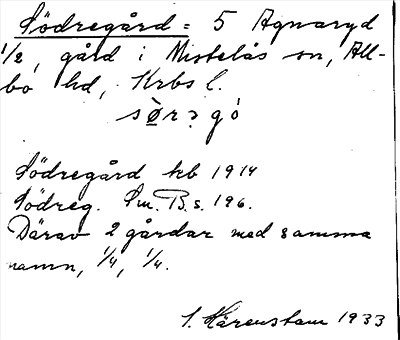 Södregård = 5 Agnaryd
1/2, gård i Mistelås sn, All-
bo hd, Krbs l.
sø̀rɔgó
Södregård kb 1914
Södreg. Sm. B. s. 196.
Därav 2 gårdar med samma
namn, 1/4, 1/4.
S. Härenstam 1933